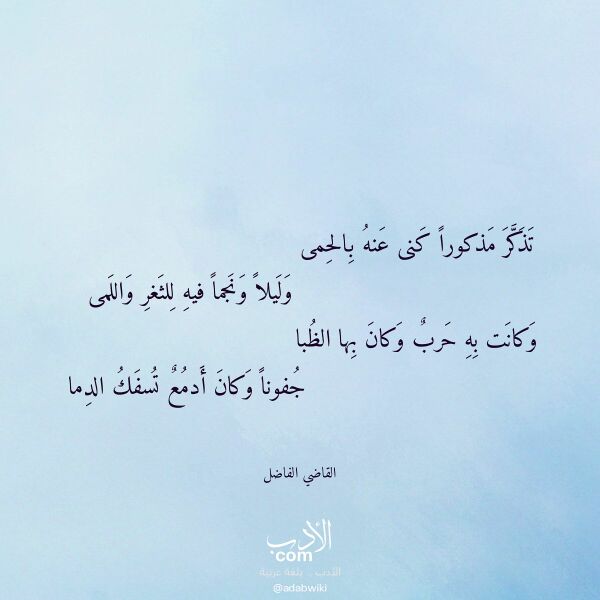 تَذَكَّرَ مَذكوراً كَنى عَنهُ بِالحِمى
وَلَيلاً وَنَجماً فيهِ لِلثَغرِ وَاللَمى
وَكانَت بِهِ حَربٌ وَكانَ بِها الظُبا
جُفوناً وَكانَ أَدمُعٌ تُسفَكُ الدِما
القاضي الفاضل
الأدب
com
الأدب .. بلغة عربية
@adabwiki